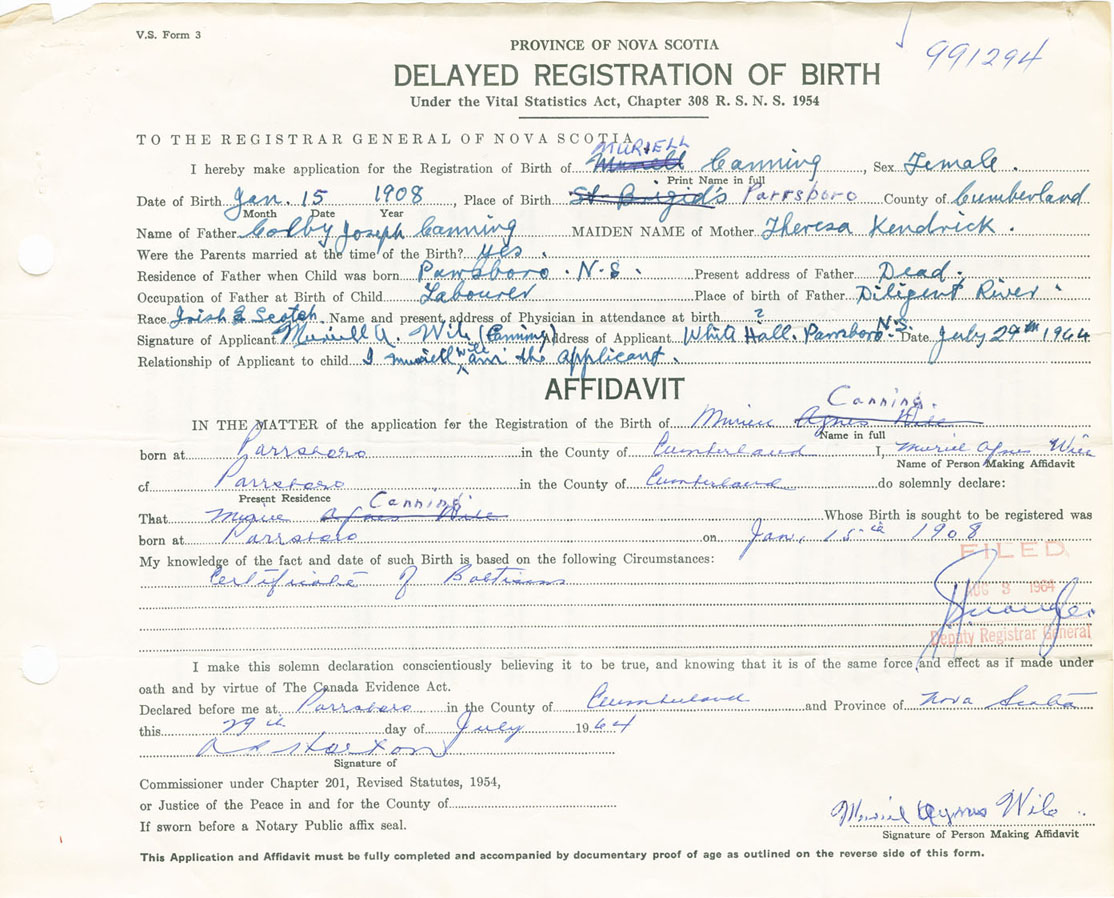 V.S. Form 3
991294
PROVINCE OF NOVA SCOTIA
DELAYED REGISTRATION OF BIRTH
Under the Vital Statistics Act, Chapter 308 R. S. N. S. 1954
TO THE REGISTRAR GENERAL OF NOVA SCOTIA
MURIELL
I hereby make application for the Registration of Birth of Muriell Canning, Sex Female.
Print Name in full
Date of Birth Jan. 15 1908, Place of Birth St Brigid's Parrsboro County of Cumberland
Month Date Year
Name of Father Colby Joseph Canning MAIDEN NAME of Mother Theresa Kendrick.
Were the Parents married at the time of the Birth? Yes.
Residence of Father when Child was born Parrsboro. N.S. Present address of Father Dead.
Occupation of Father at Birth of Child Labourer Place of birth of Father Diligent River.
Race Irish & Scotch. Name and present address of Physician in attendance at birth ?
Signature of Applicant Muriell A. Wile (Canning) Address of Applicant White Hall. Parrsboro N.S. Date July 29th 1964
Relationship of Applicant to child I Muriell Wile am the applicant.
AFFIDAVIT
Canning.
IN THE MATTER of the application for the Registration of the Birth of Muriel Agnes Wile
Name in full
born at Parrsboro in the County of Cumberland I, Muriel Agnes Wile
Name of Person Making Affidavit
of Parrsboro in the County of Cumberland do solemnly declare:
Present Residence
Canning
That Muriel Agnes Wile Whose Birth is sought to be registered was
born at Parrsboro on Jan, 15th 1908
My knowledge of the fact and date of such Birth is based on the following Circumstances:
FILED
Certificate of Baltisms
AUG 3 1964
Deputy Registrar General
I make this solemn declaration conscientiously believing it to be true, and knowing that it is of the same force and effect as if made under
oath and by virtue of The Canada Evidence Act.
Declared before me at Parrsboro in the County of Cumberland and Province of Nova Scotia
this 29th day of July 1964
Signature of
Commissioner under Chapter 201, Revised Statutes, 1954,
or Justice of the Peace in and for the County of
If sworn before a Notary Public affix seal.
Muriel Agnes Wile
Signature of Person Making Affidavit
This Application and Affidavit must be fully completed and accompanied by documentary proof of age as outlined on the reverse side of this form.